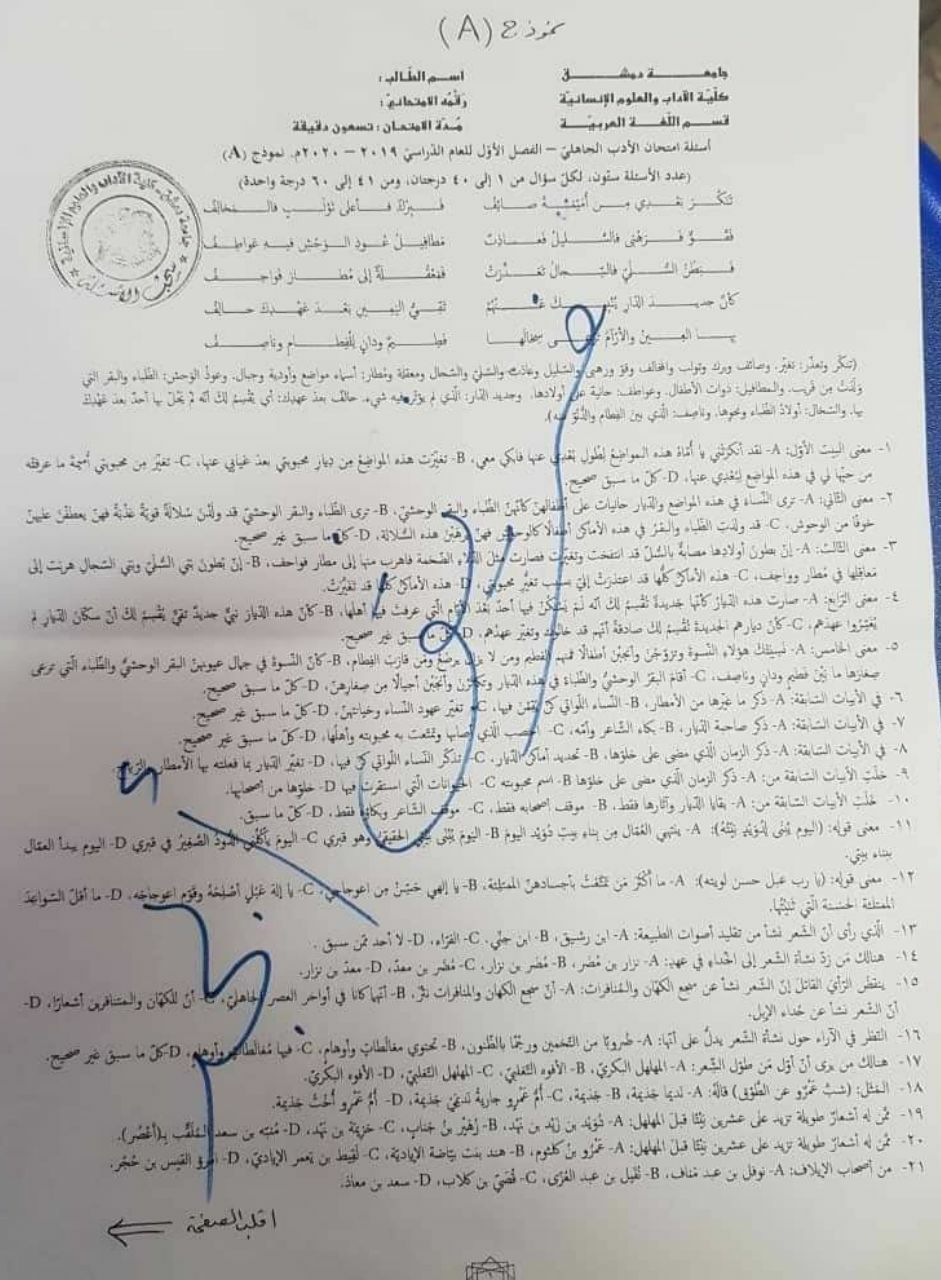 نموذج (A)
جامعـــة دمشـــق
اسم الطّالب:
كلّيّة الآداب والعلوم الإنسانيّة
رقمُه الامتحانيّ:
قسم اللّغة العربيّة
مُدّة الامتحان: تسعون دقيقة
أسئلة امتحان الأدب الجاهليّ – الفصل الأوّل للعام الدّراسيّ ٢٠١٩ – ٢٠٢٠م. نموذج (A)
(عدد الأسئلة ستّون، لكلّ سؤال من ١ إلى ٤٠ درجتان، ومن ٤١ إلى ٦٠ درجة واحدة)
تنكّرَ بَعْدِي مِن أُمَيْمَةَ صائِفُ فَبِرْكٌ فأعلى تَوْلَبٍ فالمخالفُ
فَقَوٌّ فَرَهْبى فالسَّليلُ فعاذِبٌ مَطافيلُ عُوذِ الوَحْشِ فيه عَواطِفُ
فبَطْنُ السُّلَيِّ فالسِّخالُ تعَذَّرَتْ فمَعْقُلَةٌ إلى مُطارٍ فواحِفُ
كأنّ جديدَ الدّارِ عَنْهُمْ تَقِيُّ اليَمينِ بَعْدَ عَهْدِكَ حالِفُ
بها العِينُ والآرامُ سِخالَها فَطِيمٌ ودانٍ لِلْفِطامِ وناصِفُ
(تنكّر وتعذّر: تغيّر. وصائف وبرك وتولب والمخالف وقوّ ورهبى والسّليل وعاذب والسّليّ والسّخال ومعقلة ومُطار: أسماء مواضع وأودية وجبال. وعوذُ الوحش: الظّباء والبقر التي
ولدَتْ مِن قريب. والمطافيل: ذوات الأطفال. وعواطف: حانية على أولادها. وجديد الدّار: الّذي لم يؤثّر فيه شيء. حالف بعدَ عهدك: أي يُقسِمُ لكَ أنّه لم يَحُلّ بها أحدٌ بعدَ عَهْدِكَ
بها. والسّخال: أولادُ الظّباء ونحوها. وناصِف: الّذي بين الفِطام والدُّنُوّ منه).
١- معنى البيت الأوّل: A- لقد أنكرَتْني يا أُمّاهُ هذه المواضِعُ لِطُولِ بُعْدي عنها فابكي معي، B- تغيّرَت هذه المواضِعُ مِن دِيارِ محبوبتي بعدَ غيابي عنها، C- تغيّرَ مِن محبوبتي أُميمةَ ما عرفتُه
من حبّها لي في هذه المواضِعِ لِبُعْدي عنها، D- كلّ ما سبق صحيح.
٢- معنى الثّاني: A- ترى النّساءَ في هذه المواضع والدّيار حانيات على أطفالهنّ كأنّهنّ الظّباء والبقر الوحشيّ، B- ترى الظّباء والبقر الوحشيّ قد ولَدْنَ سُلالةً قويّةً عَذْبةً فهنّ يعطفْنَ عليهنّ
خوفًا من الوحوش، C- قد ولدَتِ الظّباء والبقرُ في هذه الأماكن أطفالًا كالوحوش فهنّ هذه السُّلالة، D- كلّ ما سبق غير صحيح.
٣- معنى الثّالث: A- إنّ بطونَ أولادِها مصابةٌ بالسُّلّ قد انتفخت وتغيّرَت فصارت مثلَ الضّخمة فاهرب منها إلى مطار فواحف، B- إنّ بُطونَ بَني السُّلَيّ وبَني السّخال هربَتْ إلى
معاقلها في مُطار وواحف، C- هذه الأماكنُ كلُّها قد اعتذرَتْ إليّ بسبب تغيُّرِ محبوبتي، D- هذه الأماكنُ كلُّها قد تغيَّرَتْ.
٤- معنى الرّابع: A- صارت هذه الدّيارُ كأنّها جديدةٌ تُقسِمُ لك أنّه لَمْ يَسْكُنْ فيها أحدٌ بَعْدَ الأيّامِ الّتي عرفتَ فيها أهلَها، B- كأنّ هذه الدّيارَ نبيٌّ جديدٌ تقيٌّ يُقسِمُ لك أنّ سكّانَ الدّيارِ لم
يُغيّروا عهدَهم، C- كأنّ ديارهم الجديدةَ تُقسِمُ لك صادقةً أنّهم قد خانوك وتغيّر عهدُهم، D- كلّ ما سبق غير صحيح.
٥- معنى الخامس: A- تُسيئُكَ هؤلاءِ النّسوةُ وتزوّجْنَ وأنجبْنَ أطفالًا فمنهم الفطيم ومن لا يزال يرضعُ ومَن قاربَ الفِطام، B- كأنّ النّسوةَ في جمال عيونهنّ البقر الوحشيّ والظّباء الّتي ترعى
صِغارَها ما بَيْنَ فَطيمٍ ودانٍ وناصِف، C- أقامَ البقرُ الوحشيُّ والظّباءُ في هذه الدّيارِ وتكاثَرْنَ وأنجَبْنَ أجيالًا مِن صِغارِهنّ، D- كلّ ما سبق صحيح.
٦- في الأبيات السّابقة: A- ذكر ما غيّرها من الأمطار، B- النّساء اللّواتي كنّ يَقِفْنَ فيها، C- تغيّر عهود النّساء وخيانتهنّ، D- كلّ ما سبق غير صحيح.
٧- في الأبيات السّابقة: A- ذكر صاحبة الدّيار، B- بكاء الشّاعر وأمّه، C- الخِصب الّذي أصابها وتمتّعت به محبوبته وأهلُها، D- كلّ ما سبق صحيح.
٨- في الأبيات السّابقة: A- ذكر الزمان الّذي مضى على خلوّها، B- تحديد أماكن الدّيار، C- تذكّر النّساء اللّواتي كنّ فيها، D- تغيّر الدّيار بما فعلته بها الأمطار والرّياح.
٩- خلَتِ الأبيات السّابقة من: A- ذكر الزمان الّذي مضى على خلوّها B- اسم محبوبته C- الحيوانات الّتي استقرّت فيها D- خلوّها من أصحابها.
١٠- خلَتِ الأبيات السّابقة من: A- بقايا الدّيار وآثارها فقط، B- موقف أصحابه فقط، C- موقف الشّاعر وبكاؤه فقط، D- كلّ ما سبق.
١١- معنى قوله: (اليوم يُبْنى لِدُوَيْدٍ بَيْتُهُ): A- ينتهي العُمّال مِن بِناءِ بيتِ دُوَيْد اليومَ B- اليومَ يُبْنى بَيْتي الحقيقيّ وهو قبري C- اليومَ يأكُلُني الدّودُ الصّغيرُ في قبري D- اليوم يبدأ العمّال
بناء بيتي.
١٢- معنى قوله: (يا رب عبل حسن لويته): A- ما أكْثَرَ مَن بأجسادهنّ الممتلئة، B- يا إلهي حَسِّنْ مِن اعوجاجي، C- يا إلهَ عَبْلٍ أصْلِحْهُ وقَوِّم اعوجاجَه، D- ما أقلَّ السّواعدَ
الممتلئة الحَسَنة الّتي ثَنَيْتُها.
١٣- الّذي رأى أنّ الشّعر نشأ من تقليد أصوات الطبيعة: A- ابن رشيق، B- ابن جنّي، C- الفرّاء، D- لا أحد ممّن سبق .
١٤- هنالك مَن رَدّ نشأةَ الشّعر إلى الحُداءِ في عهدِ: A- نزار بن مُضر، B- مُضَر بن نزار، C- مُضَر بن معدّ، D- معدّ بن نزار.
١٥- ينقض الرّأيَ القائلَ إنّ الشّعر نشأ عن سجع الكهّان والمُنافرات: A- أنّ سجع الكهان والمنافرات نثرٌ، B- أنّهما كانا في أواخر العصر الجاهليّ، C- أنّ للكهّان والمتنافرين أشعارًا، D-
أنّ الشّعر نشأ عن حُداء الإبل.
١٦- النّظر في الآراء حول نشأة الشّعر يدلّ على أنّها: A- ضُروبًا من التّخمين ورجْمًا بالظّنون، B- تحتوي مغالطاتٍ وأوهام، C- فيها مُغالطاتٌ وأوهام، D- كلّ ما سبق غير صحيح.
١٧- هنالك من يرى أنّ أوّل مَن طوّل الشّعر: A- المهلهل البكريّ، B- الأفوه التّغلبيّ، C- المهلهل التّغلبيّ، D- الأفوه البكريّ.
١٨- المَثل: (شبّ عَمْرٌو عن الطَّوْقِ) قالَهُ: A- نَديما جَذيمة، B- جَذيمة، C- أُمُّ عَمْرو جاريةُ نَديمَيْ جَذيمة، D- أُمُّ عَمْرو أُخْتُ جَذيمة.
١٩- ممّن له أشعارٌ طويلة تزيد على عشرين بيتًا قبل المهلهل: A- دُوَيْد بن زَيْد بن نَهْد، B- زُهَيْرُ بنُ جَناب، C- خزيمة بن نَهْد، D- مُنَبِّه بن سعد المُلَقَّب بـ(أَعْصُر).
٢٠- ممّن له أشعارٌ طويلة تزيد على عشرين بيتًا قبل المهلهل: A- عَمْرُو بنُ كلثوم، B- هند بنت بيّاضة الإياديّة، C- لَقيط بن يعمر الإياديّ، D- امرؤ القيس بن حُجْر.
٢١- من أصحاب الإيلاف: A- نوفل بن عبد مَناف، B- نُفيل بن عبد العُزّى، C- قُصَيّ بن كلاب، D- سعد بن معاذ.
اقلب الصفحة